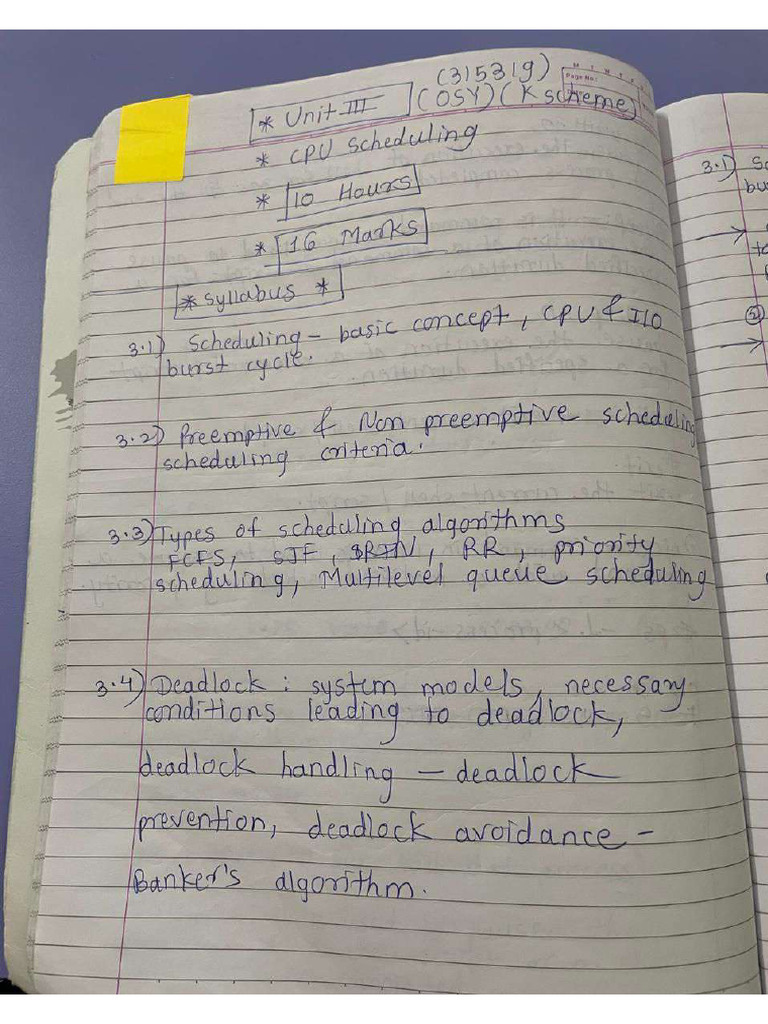 (315319)
Page No:
* Unit III (OSY) (K scheme)
* CPU Scheduling
* 10 Hours
* 16 Marks
* Syllabus *
3.1) Scheduling - basic concept, CPU & I/O
burst cycle.
3.2) Preemptive & Non preemptive scheduling
scheduling criteria.
3.3) Types of scheduling algorithms
FCFS, SJF, SRTN, RR, priority
scheduling, Multilevel queue scheduling
3.4) Deadlock : system models, necessary
conditions leading to deadlock,
deadlock handling - deadlock
prevention, deadlock avoidance -
Banker's algorithm.
3.1)